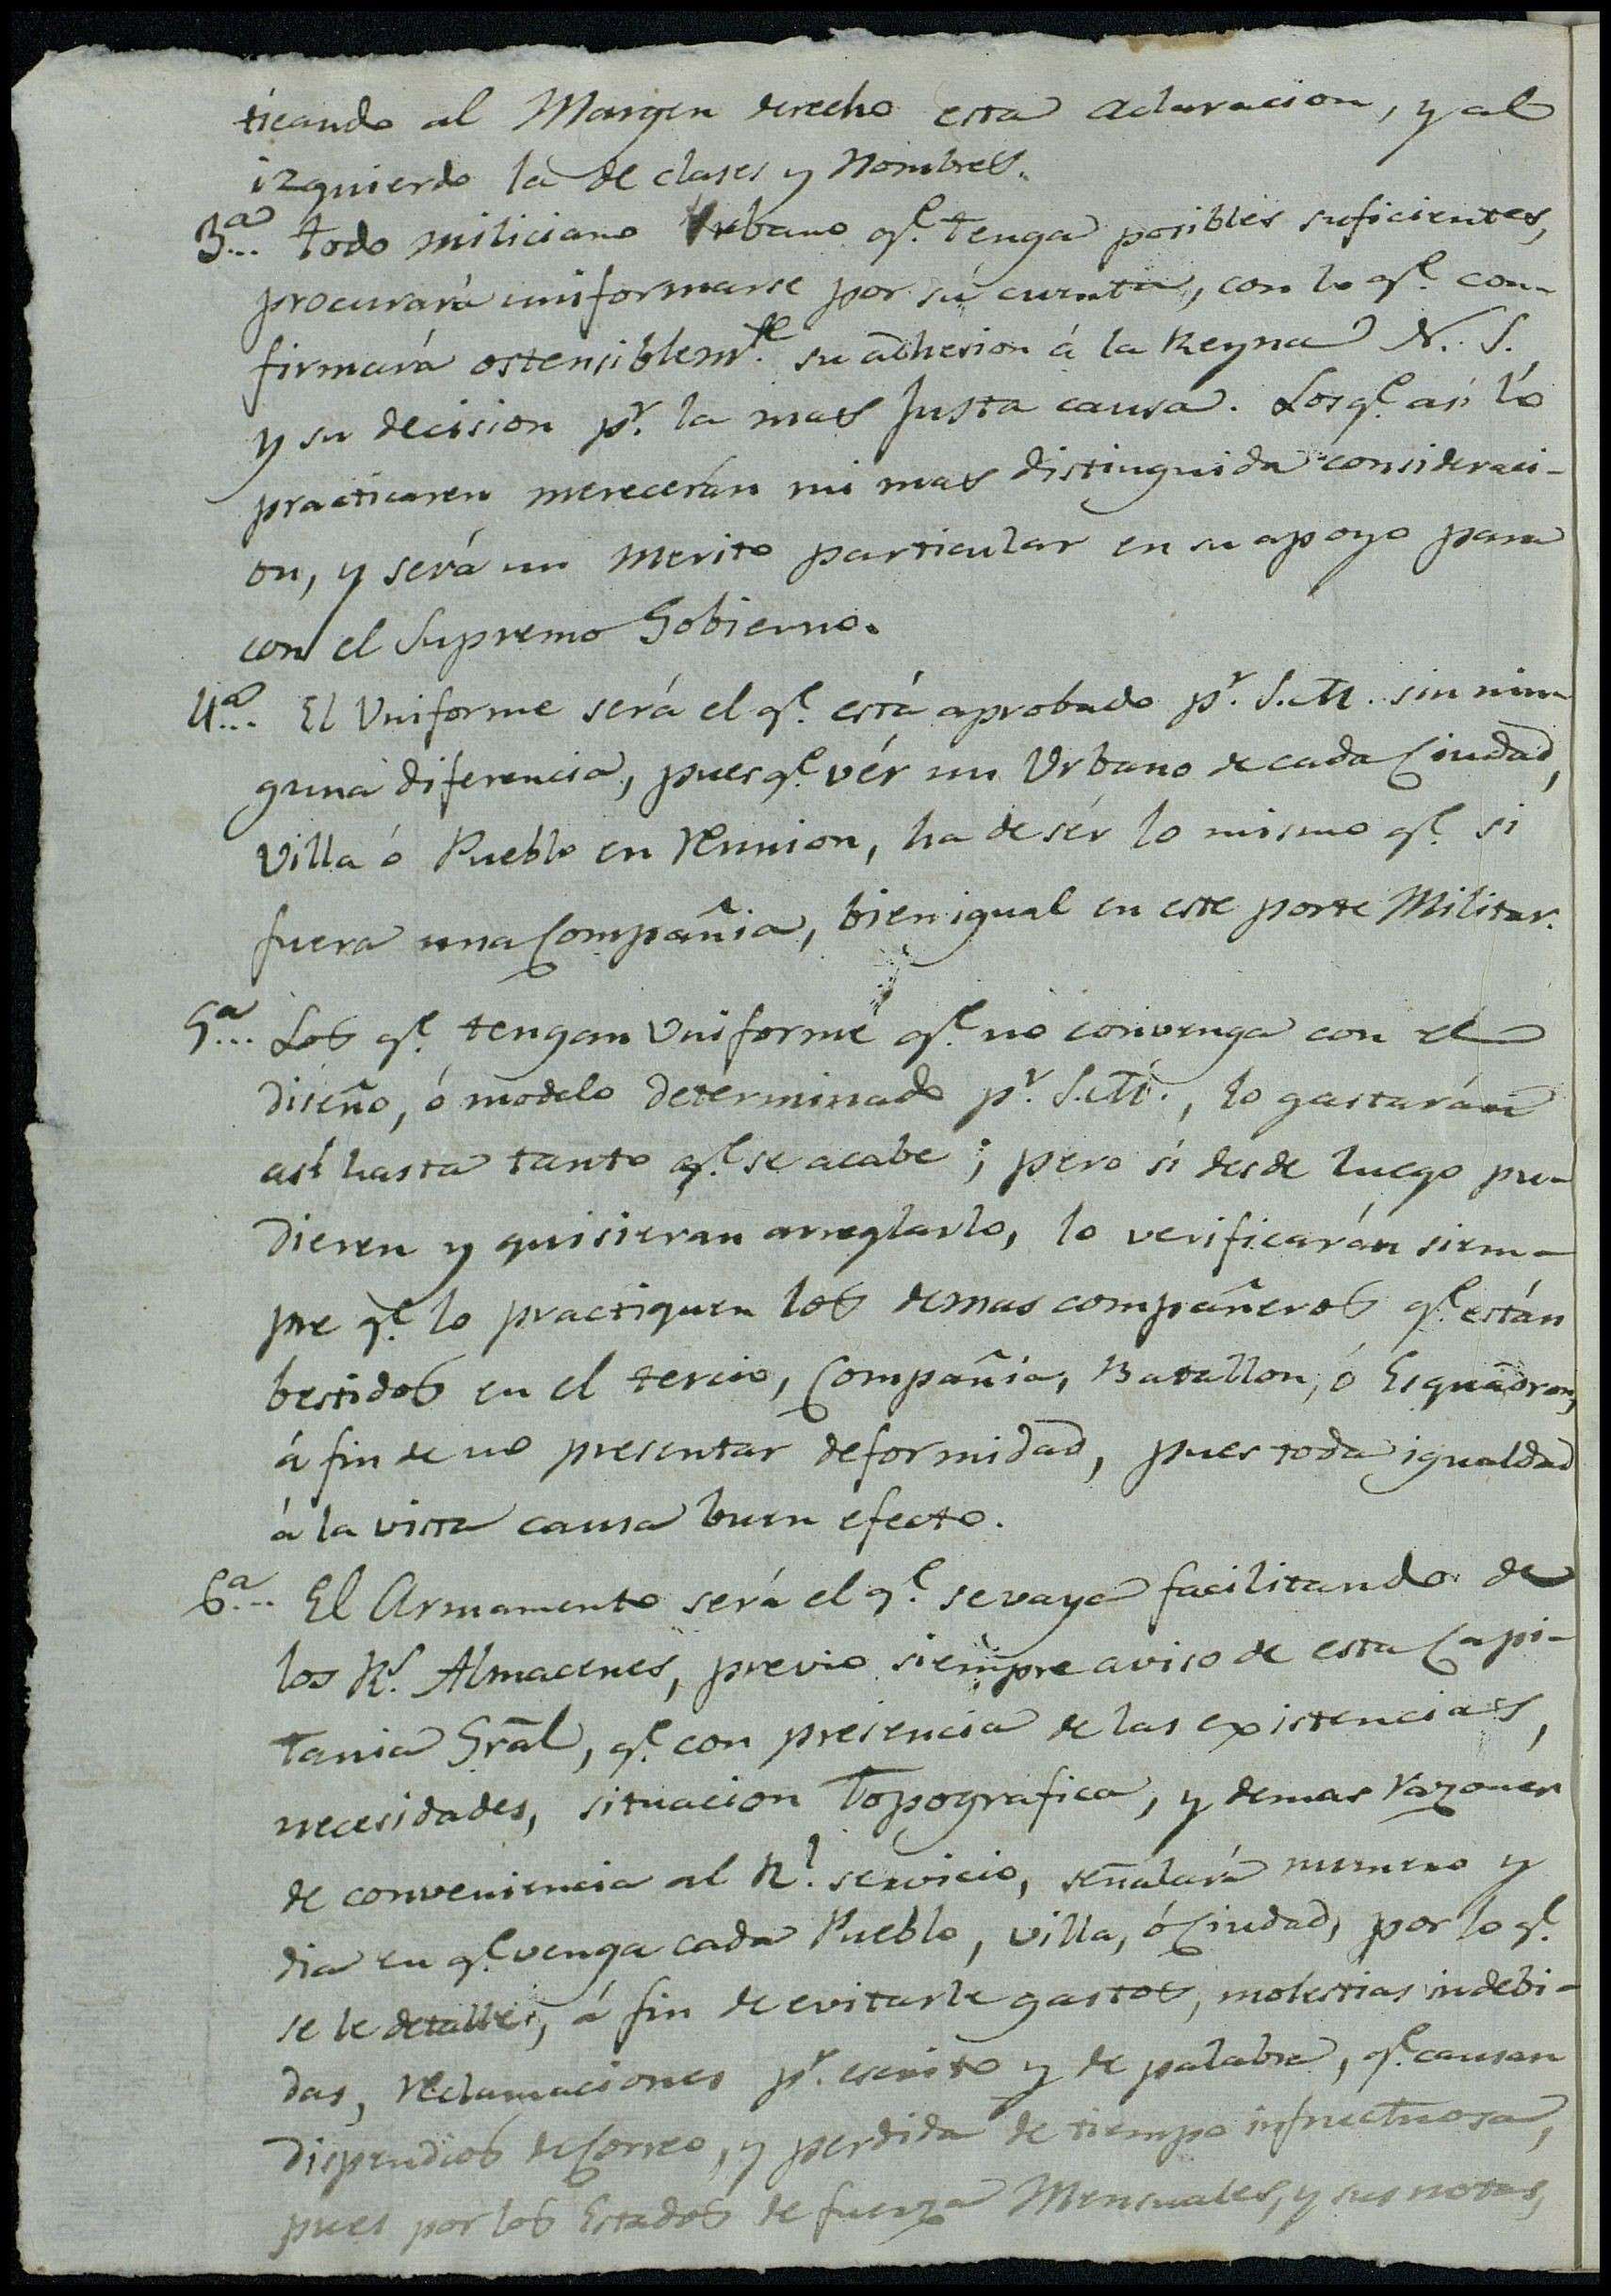 ticando al Margen derecho esta aclaracion, y al
izquierdo la de clases y Nombres.
3ª... Todo miliciano Urbano qe. tenga posibles suficientes,
procurará uniformarse por sú cuenta, con lo qe. con-
firmará ostensiblemte. su adhesion á la Reyna N. S.
y su decision pr. la mas Justa causa. Los qe. asi lo
practicaren merecerán mi mas distinguida consideraci-
on, y será un merito particular en su apoyo para
con el Supremo Gobierno.
4ª... El Uniforme será el qe. está aprobado pr. S.M. sin nin-
guna diferencia, pues qe. vér un Urbano de cada Ciudad,
Villa ó Pueblo en reunion, ha de sér lo mismo qe. si
fuera una Compañia, bien igual en este porte Militar.
5ª... Los qe. tengan Uniforme qe. no convenga con el
diseño, ó modelo determinado pr. S.M., lo gastarán
asi hasta tanto qe. se acabe; pero si desde luego pu-
dieren y quisieran arreglarlo, lo verificarán siem-
pre qe. lo practiquen los demas compañeros qe. están
bestidos en el tercio, Compañia, Batallon, ó Esquadron,
á fin de no presentar deformidad, pues toda igualdad
á la vista causa buen efecto.
6ª... El Armamento será el qe. se vaya facilitando de
los Rs. Almacenes, previo siempre aviso de esta Capi-
tania Gral, qe. con presencia de las existencias,
necesidades, situacion Topografica, y demas razones
de conveniencia al Rl. servicio, señalará numero y
dia en qe. venga cada Pueblo, villa, ó Ciudad, por lo qe.
se le detalle, á fin de evitarle gastos, molestias indebi-
das, reclamaciones pr. escrito y de palabra, qe. causan
dispendios de Correo, y perdida de tiempo infructuosa,
pues por los Estados de fuerza Mensuales, y sus notas,